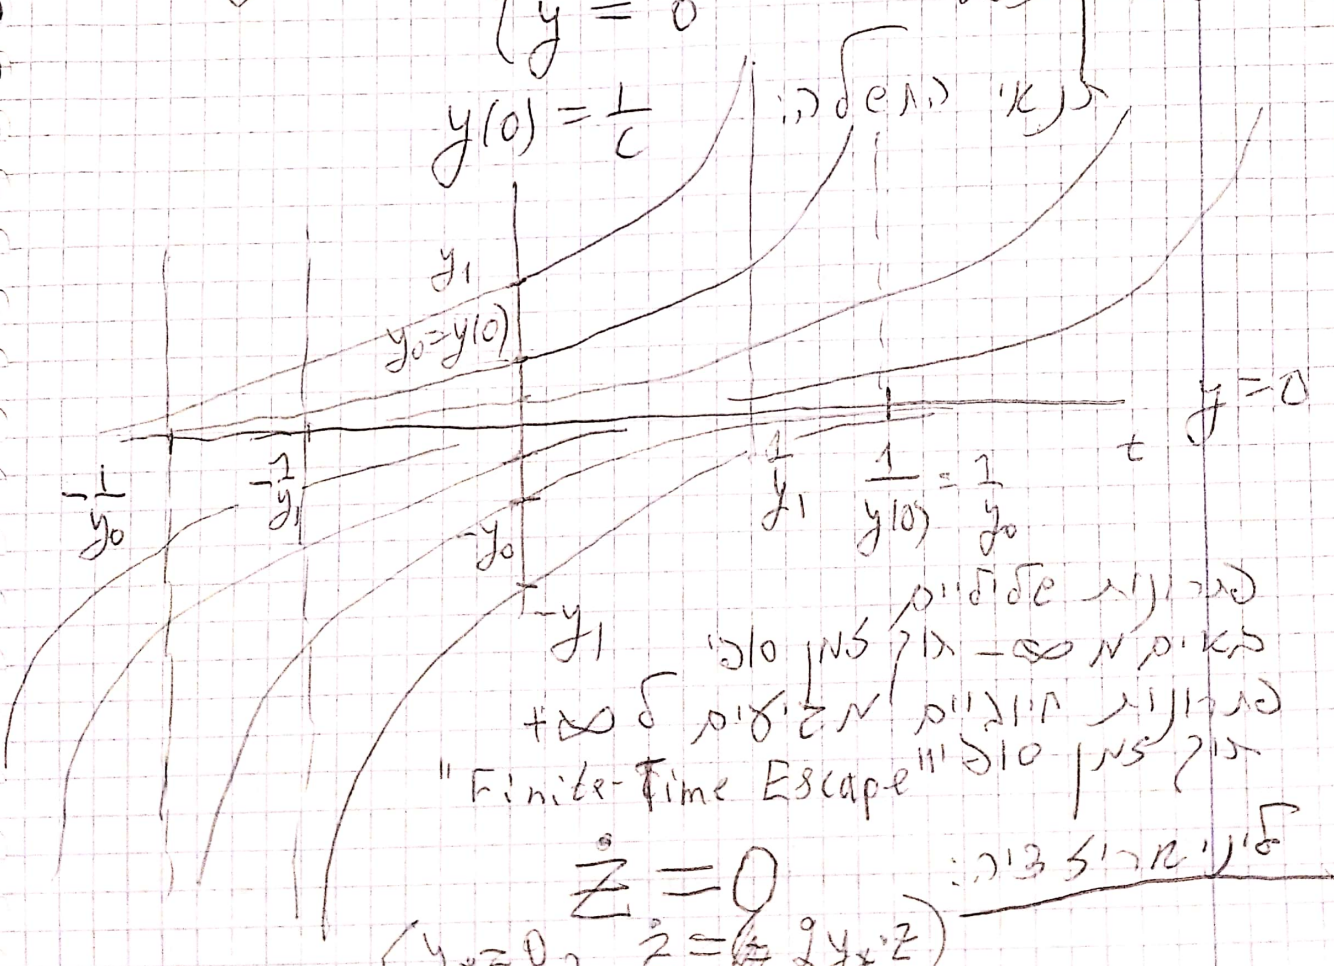 y = 0
y(0) = 1/c
תנאי התחלה:
y₁
y₀=y(0)
y=0
t
-1/y₀
-1/y₁
1/y₁
1/y(0) = 1/y₀
-y₀
-y₁
פתרונות שליליים
באים מ ∞- תוך זמן סופי
פתרונות חיוביים מגיעים ל ∞+
תוך זמן סופי
"Finite-Time Escape"
לינאריזציה:
ż = 0
(yₓ=0, ż = 2yₓ·z)